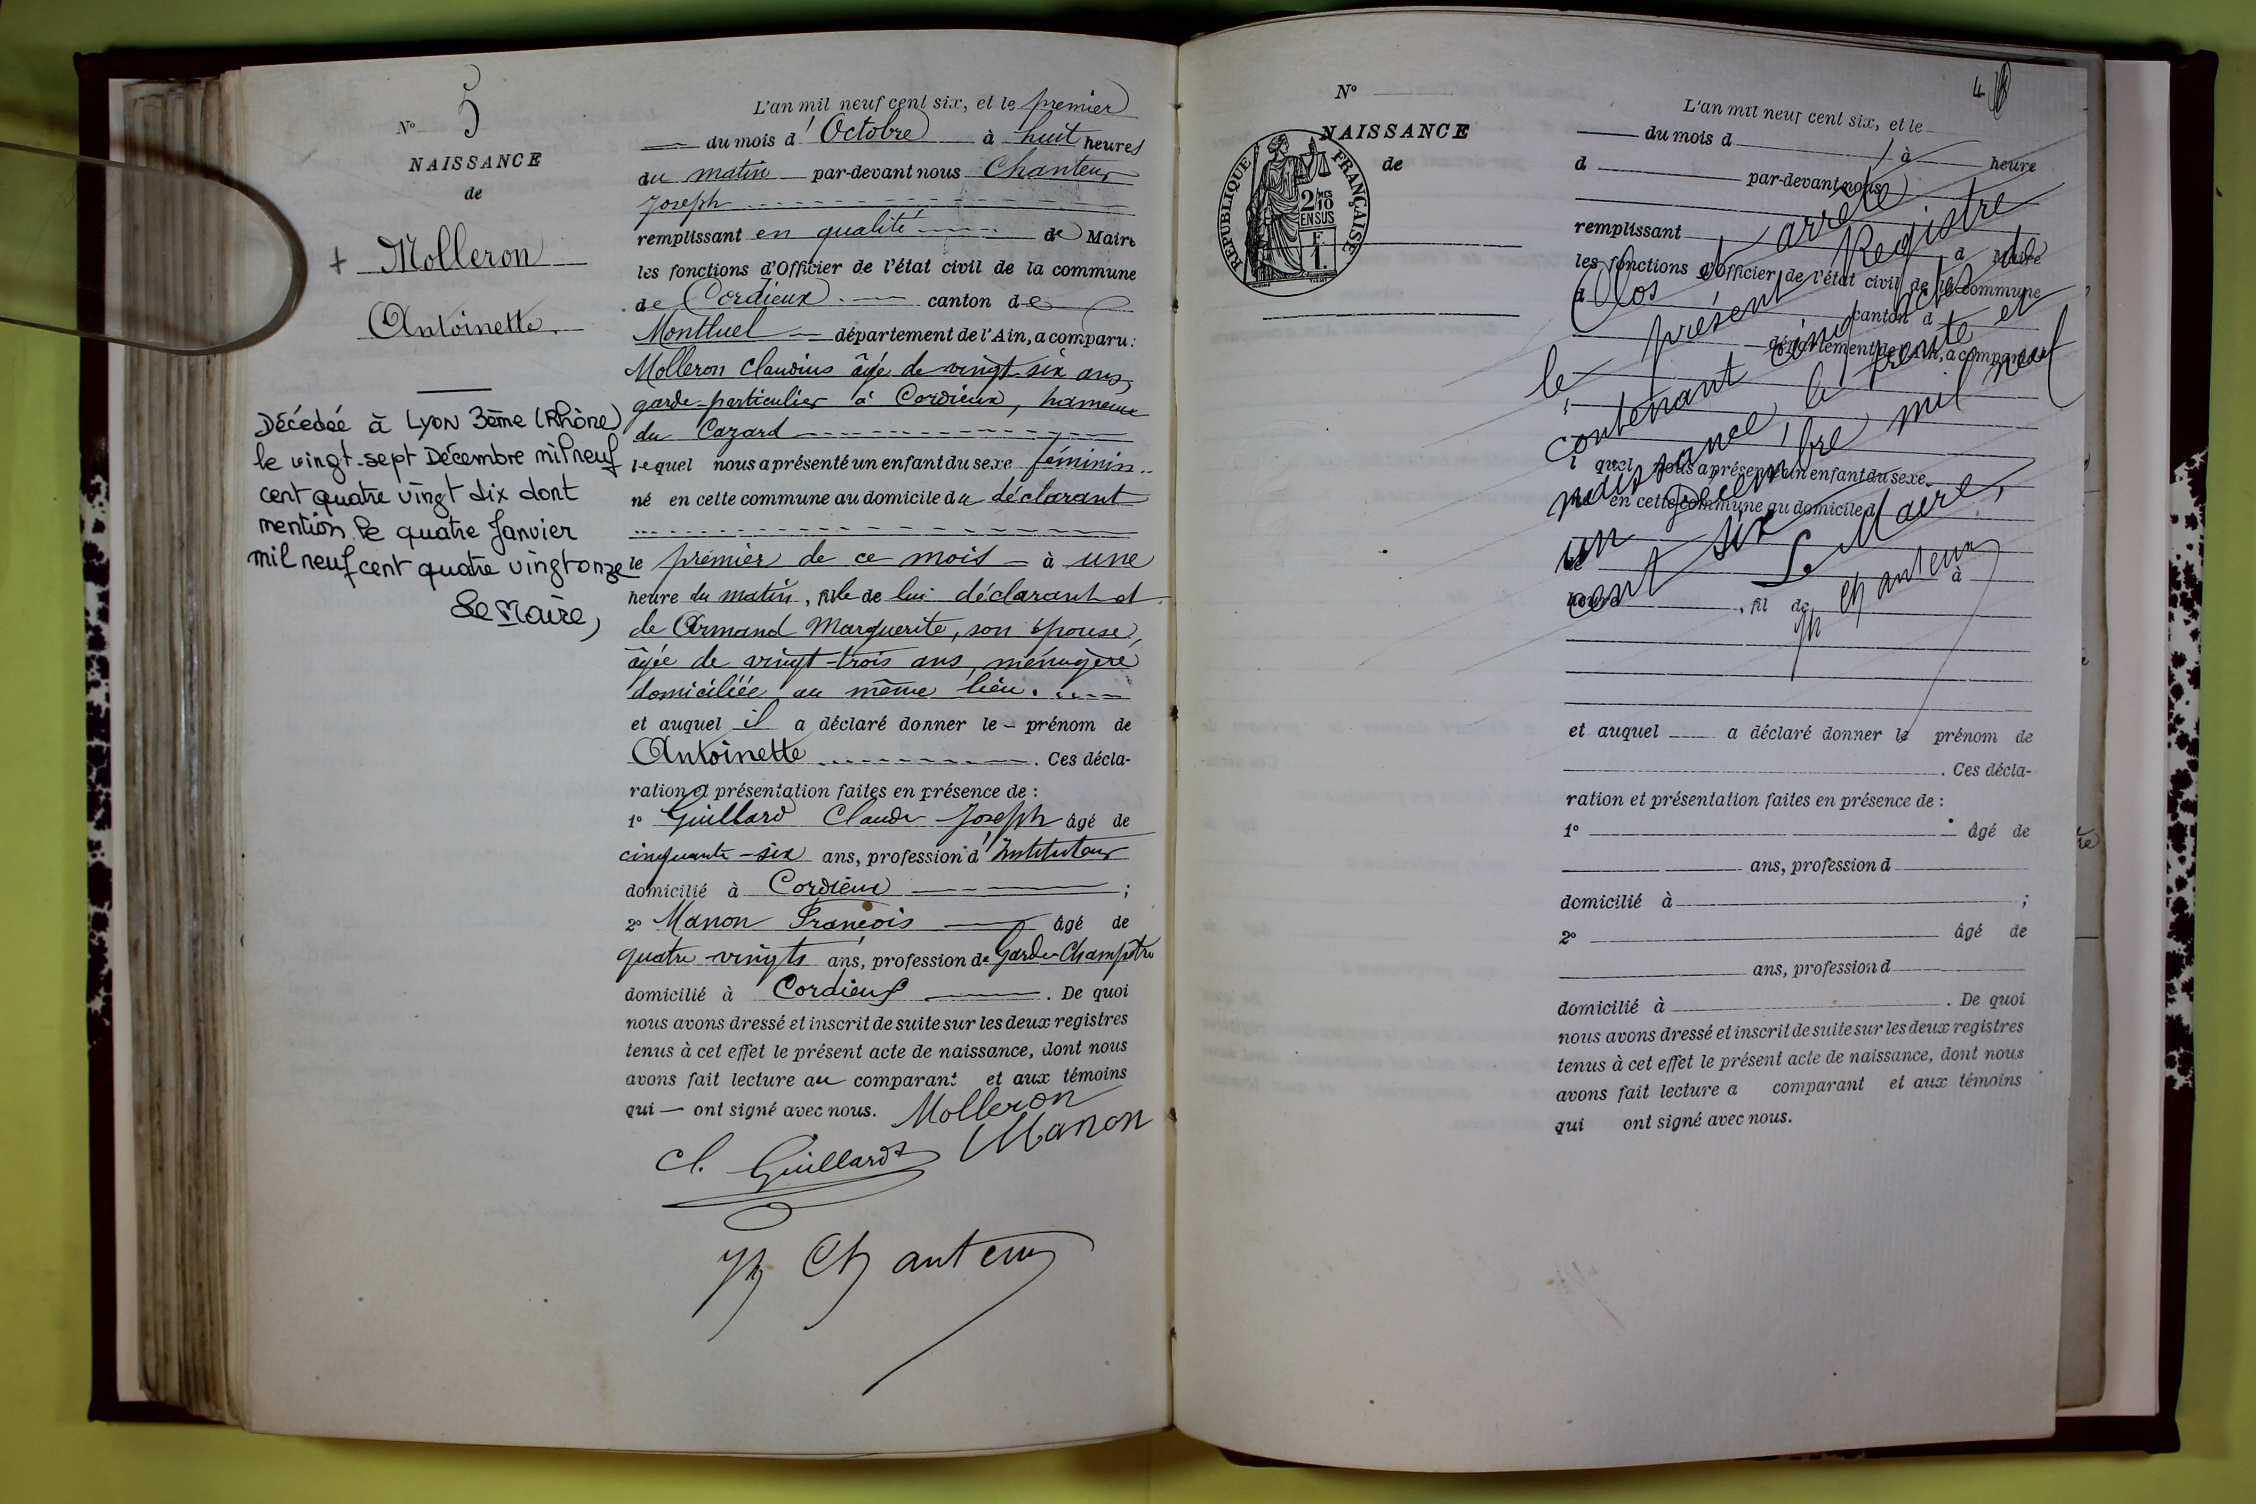 N° 5
NAISSANCE
de
+ Molleron
Antoinette.
Décédée à Lyon 3ème (Rhône)
le vingt-sept Décembre mil neuf
cent quatre vingt dix dont
mention le quatre Janvier
mil neuf cent quatre vingt onze
Le Maire,
L'an mil neuf cent six, et le premier
du mois d'Octobre à huit heures
du matin par-devant nous Chanteur
Joseph
remplissant en qualité de Maire
les fonctions d'Officier de l'état civil de la commune
de Cordieux canton de
Montluel département de l'Ain, a comparu:
Molleron Claudius âgé de vingt-six ans,
garde-particulier à Cordieux, hameau
du Cazard
lequel nous a présenté un enfant du sexe féminin
né en cette commune au domicile du déclarant
le premier de ce mois à une
heure du matin, fille de lui déclarant et
de Armand Marguerite, son épouse,
âgée de vingt-trois ans, ménagère
domiciliée au même lieu.
et auquel il a déclaré donner le prénom de
Antoinette. Ces décla-
ration et présentation faites en présence de:
1° Guillard Claude Joseph âgé de
cinquante-six ans, profession d'Instituteur
domicilié à Cordieux;
2° Manon François âgé de
quatre-vingts ans, profession de Garde-Champêtre
domicilié à Cordieux. De quoi
nous avons dressé et inscrit de suite sur les deux registres
tenus à cet effet le présent acte de naissance, dont nous
avons fait lecture au comparant et aux témoins
qui ont signé avec nous. Molleron
Cl. Guillard Manon
Jh Chanteur
4
N°
NAISSANCE
de
RÉPUBLIQUE FRANÇAISE
2/10 EN SUS
F
1.
L'an mil neuf cent six, et le
du mois d à heure
d par-devant nous
remplissant d Maire
les fonctions d'Officier de l'état civil de la commune
d canton d
département de l'Ain, a comparu
l quel nous a présenté un enfant du sexe
né en cette commune au domicile d
le à
heure , fil de
Clos et arrêté
le présent Registre
contenant cinq actes de
naissance, le trente et
un Décembre mil neuf
cent six
Le Maire,
Jh Chanteur
et auquel a déclaré donner le prénom de
. Ces décla-
ration et présentation faites en présence de:
1° âgé de
ans, profession d
domicilié à ;
2° âgé de
ans, profession d
domicilié à . De quoi
nous avons dressé et inscrit de suite sur les deux registres
tenus à cet effet le présent acte de naissance, dont nous
avons fait lecture a comparant et aux témoins
qui ont signé avec nous.